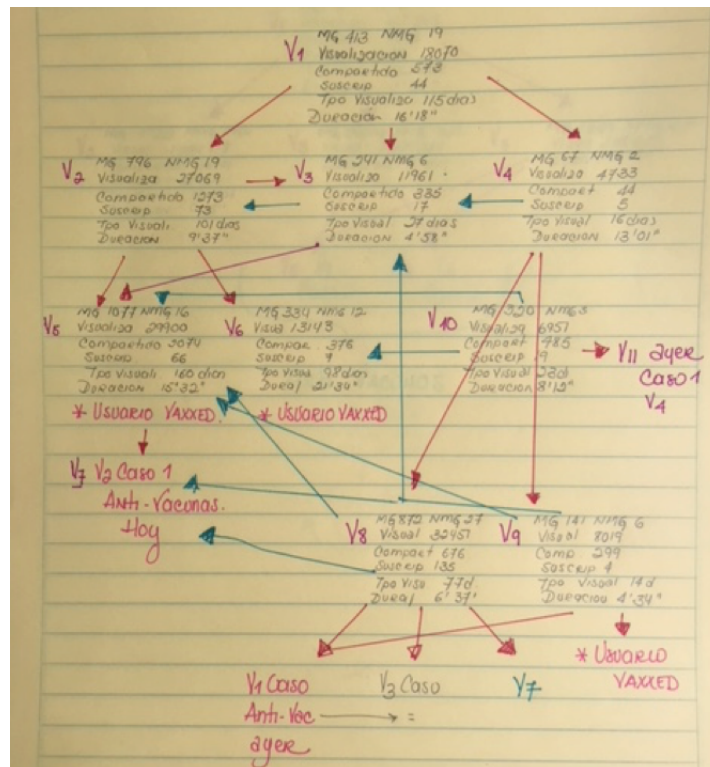 V1 MG 413 NMG 19
Visualizacion 18070
Compartido 573
Suscrip 44
Tpo Visualiza 115 dias
Duración 16'18"
V2 MG 796 NMG 19
Visualiza 27069
Compartido 1273
Suscrip 73
Tpo Visuali 101 dias
Duracion 9'37"
V3 MG 241 NMG 6
Visualiza 11961
Compartido 335
Suscrip 17
Tpo Visual 27 dias
Duración 4'58"
V4 MG 67 NMG 2
Visualiza 4733
Compart 44
Suscrip 5
Tpo Visual 16 dias
Duracion 13'01"
V5 MG 1077 NMG 16
Visualiza 29900
Compartido 3074
Suscrip 66
Tpo Visuali 160 dias
Duracion 15'32"
* Usuario VAXXED
V6 MG 334 NMG 12
Visua 13148
Compar. 376
Suscrip 9
Tpo Visua 98 dias
Durac 21'34"
* USUARIO VAXXED
V10 MG 320 NMG 3
Visualiza 6951
Compart 485
Suscrip 9
Tpo Visual 23d
Duracion 8'12"
V11 ayer
Caso 1
V4
V7 V2 Caso 1
Anti-Vacunas.
Hoy
V8 MG 872 NMG 27
Visual 32451
Compart 676
Suscrip 135
Tpo Visu. 77d
Durac 6'37"
V9 MG 141 NMG 6
Visual 8019
Comp. 299
Suscrip 4
Tpo Visual 14d
Duracion 4'34"
* USUARIO
VAXXED
V1 Caso
Anti-Vac
ayer
V3 Caso
=
V7